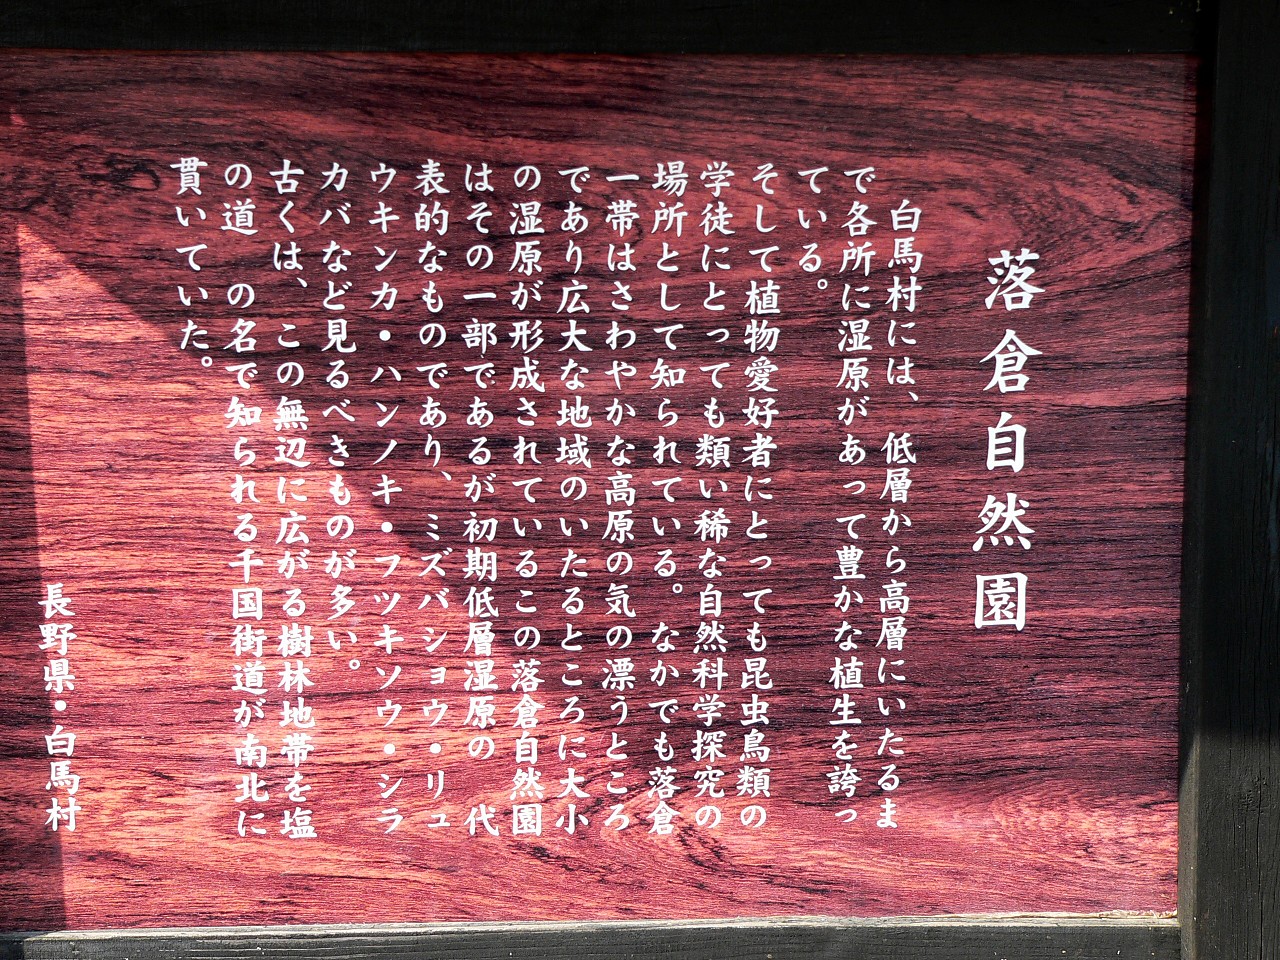 落倉自然園
白馬村には、低層から高層にいたるま
で各所に湿原があって豊かな植生を誇っ
ている。
そして植物愛好者にとっても昆虫鳥類の
学徒にとっても類い稀な自然科学探究の
場所として知られている。なかでも落倉
一帯はさわやかな高原の気の漂うところ
であり広大な地域のいたるところに大小
の湿原が形成されているこの落倉自然園
はその一部であるが初期低層湿原の 代
表的なものであり、ミズバショウ・リュ
ウキンカ・ハンノキ・フツキソウ・シラ
カバなど見るべきものが多い。
古くは、この無辺に広がる樹林地帯を塩
の道 の名で知られる千国街道が南北に
貫いていた。
長野県・白馬村